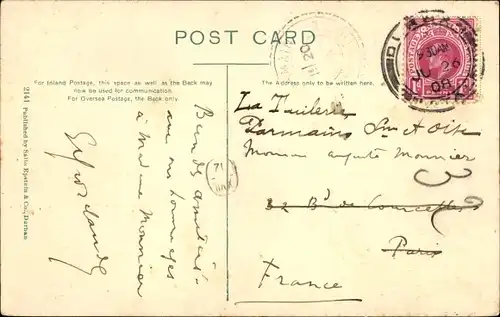 POST CARD
For Inland Postage, this space as well as the Back may
now be used for communication.
For Oversea Postage, the Back only.
The Address only to be written here.
2141 Published by Sallo Epstein & Co., Durban
Bien des amitiés
à Madame Monnier
La Tuilerie
Parmains Sne et Oise
Monsieur Auguste Monnier
32 Bd de Courcelles
Paris
France